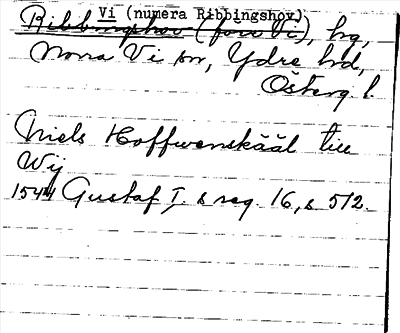 Vi (numera Ribbingshov)
Ribbingshov (förr Vi), hg,
Norra Vi sn, Ydre hd,
Österg. l.
Niels Hoffwenskääl till
Wij
1544 Gustaf I. s reg. 16, s 512.